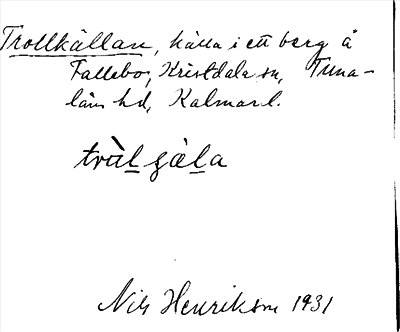 Trollkällan, källa i ett berg å
Fallebo, Kristdala sn, Tuna-
läns hd, Kalmar l.
trùl ɕàla
Nils Henrikson 1931